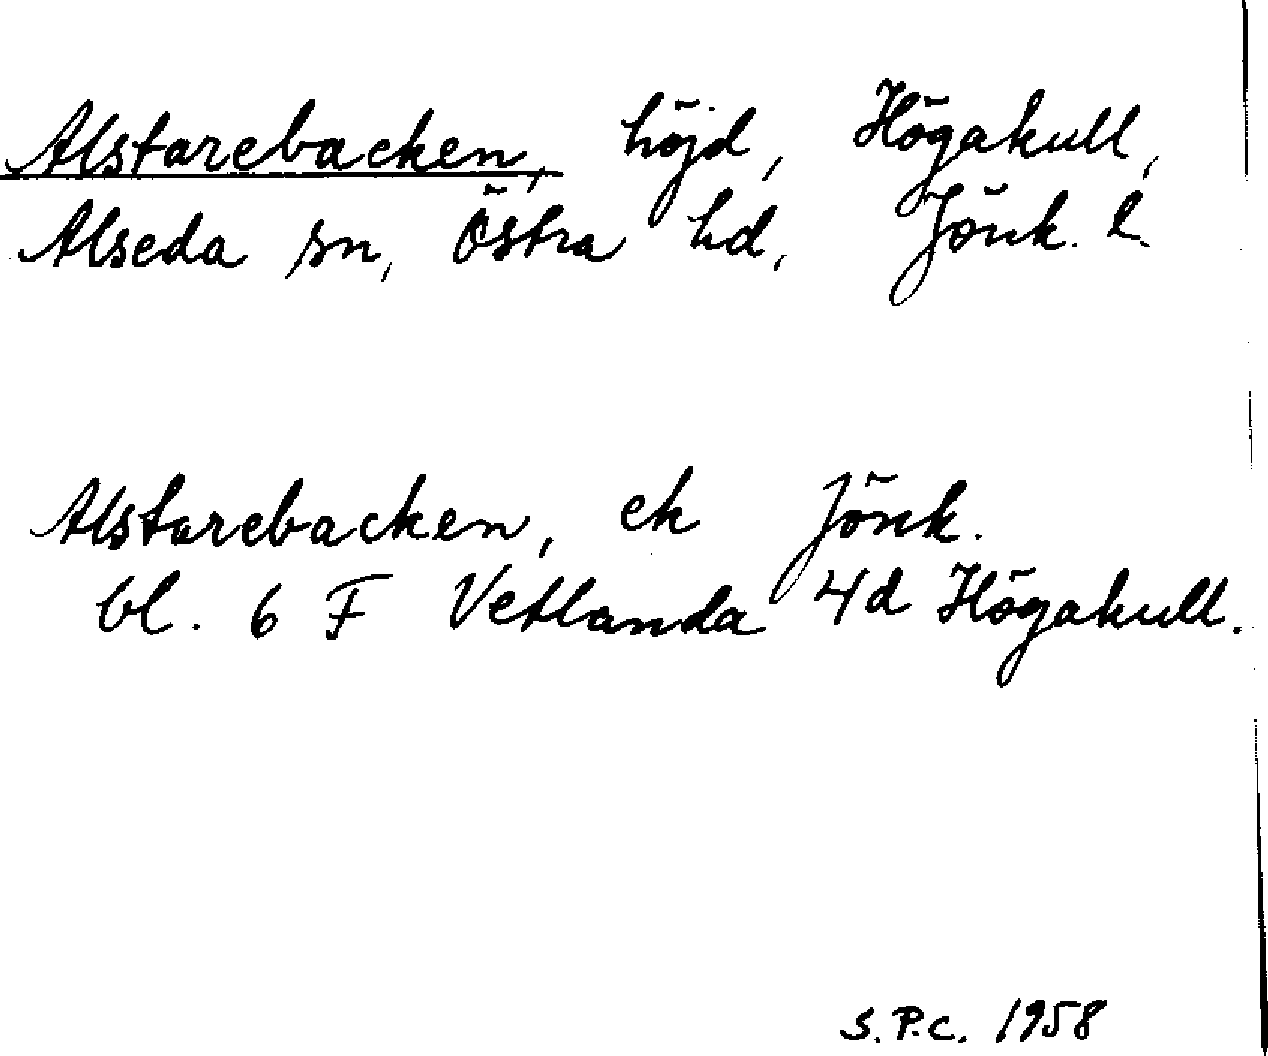 Alstarebacken, höjd, Högakull,
Alseda sn, Östra hd, Jönk. l.
Alstarebacken, ek Jönk.
bl. 6 F Vetlanda 4d Högakull.
S.P.C. 1958